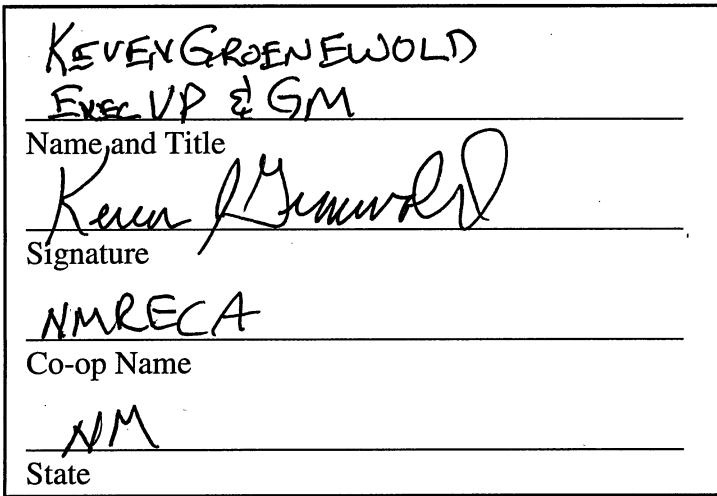 KEVEN GROENEWOLD
EXEC VP & GM
Name and Title
Keven J Groenewold
Signature
NMRECA
Co-op Name
NM
State